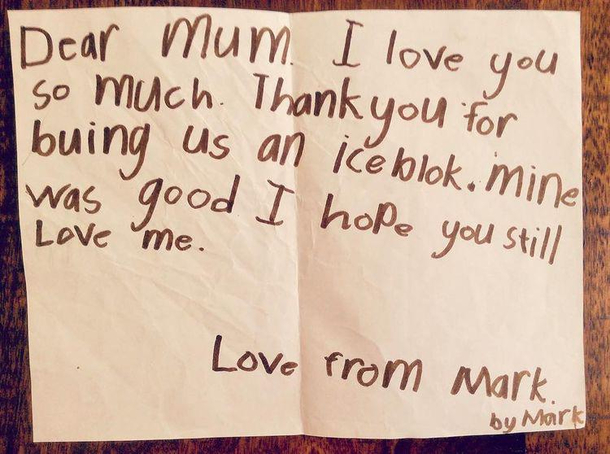 Dear Mum. I love you
so much. Thank you for
buing us an ice blok. mine
was good I hope you still
Love me.
Love from Mark.
by Mark